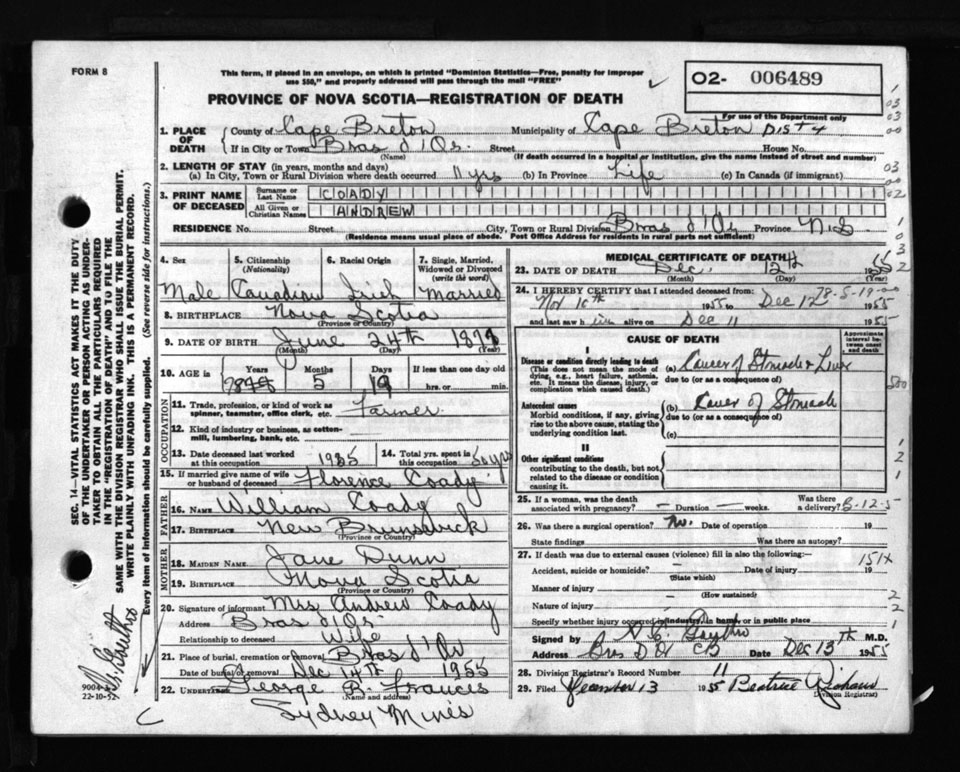 FORM 8
This form, if placed in an envelope, on which is printed "Dominion Statistics—Free, penalty for improper
use $50," and properly addressed will pass through the mail "FREE"
PROVINCE OF NOVA SCOTIA—REGISTRATION OF DEATH
O2- 006489
For use of the Department only
1. PLACE OF DEATH
County of Cape Breton Municipality of Cape Breton Dist 4
If in City or Town Bras d'Or. Street House No.
(Name) (If death occurred in a hospital or institution, give the name instead of street and number)
2. LENGTH OF STAY (in years, months and days)
(a) In City, Town or Rural Division where death occurred 11 yrs (b) In Province Life (c) In Canada (if immigrant)
3. PRINT NAME OF DECEASED
Surname or Last Name COADY
All Given or Christian Names ANDREW
RESIDENCE No. Street City, Town or Rural Division Bras d'Or Province N.S
(Residence means usual place of abode. Post Office Address for residents in rural parts not sufficient)
4. Sex 5. Citizenship (Nationality) 6. Racial Origin 7. Single, Married, Widowed or Divorced (write the word)
Male Canadian Irish Married
8. BIRTHPLACE Nova Scotia
(Province or Country)
9. DATE OF BIRTH June 24th
(Month) (Day) (Year)
10. AGE in Years Months Days If less than one day old
5 19 hrs. or min.
OCCUPATION
11. Trade, profession, or kind of work as
spinner, teamster, office clerk, etc. Farmer
12. Kind of industry or business, as cotton-
mill, lumbering, bank, etc. —
13. Date deceased last worked
at this occupation 1935
14. Total yrs. spent in
this occupation 50 yrs
15. If married give name of wife
or husband of deceased Florence Coady
FATHER
16. NAME William Coady
17. BIRTHPLACE New Brunswick
(Province or Country)
MOTHER
18. MAIDEN NAME Jane Dunn
19. BIRTHPLACE Nova Scotia
(Province or Country)
20. Signature of informant Mrs Andrew Coady
Address Bras d'Or
Relationship to deceased Wife
21. Place of burial, cremation or removal Bras d'Or
Date of burial or removal Dec 14th 1955
22. UNDERTAKER George R. Frances
(Name and address)
Sydney Mines
MEDICAL CERTIFICATE OF DEATH
23. DATE OF DEATH Dec. 12th 1955
(Month) (Day) (Year)
24. I HEREBY CERTIFY that I attended deceased from: 78-5-19-00
Nov 16th 1955 to Dec 12 1955
and last saw h im alive on Dec 11 1955
CAUSE OF DEATH
Approximate interval between onset and death
I
Disease or condition directly leading to death
(This does not mean the mode of
dying, e.g., heart failure, asthenia,
etc. It means the disease, injury, or
complication which caused death.)
(a) Cancer of Stomach & Liver
due to (or as a consequence of)
Antecedent causes
Morbid conditions, if any, giving
rise to the above cause, stating the
underlying condition last.
(b) Cancer of Stomach
due to (or as a consequence of)
(c)
II
Other significant conditions
contributing to the death, but not
related to the disease or condition
causing it.
25. If a woman, was the death
associated with pregnancy? — Duration — weeks. Was there
a delivery? B-12-5
26. Was there a surgical operation? No. Date of operation 19
State findings Was there an autopsy?
27. If death was due to external causes (violence) fill in also the following:—
151X
Accident, suicide or homicide? Date of injury 19
(State which)
Manner of injury
(How sustained)
Nature of injury
Specify whether injury occurred in industry, in home, or in public place
Signed by M.D.
Address Bras D'Or CB Date Dec 13th 1955
28. Division Registrar's Record Number 11
29. Filed December 13 1955 Beatrice
Division Registrar
SEC. 14—VITAL STATISTICS ACT MAKES IT THE DUTY
OF THE UNDERTAKER OR PERSON ACTING AS UNDER-
TAKER TO OBTAIN ALL THE PARTICULARS REQUIRED
IN THE "REGISTRATION OF DEATH" AND TO FILE THE
SAME WITH THE DIVISION REGISTRAR WHO SHALL ISSUE THE BURIAL PERMIT.
WRITE PLAINLY WITH UNFADING INK. THIS IS A PERMANENT RECORD.
Every item of information should be carefully supplied. (See reverse side for instructions.)
22-10-52